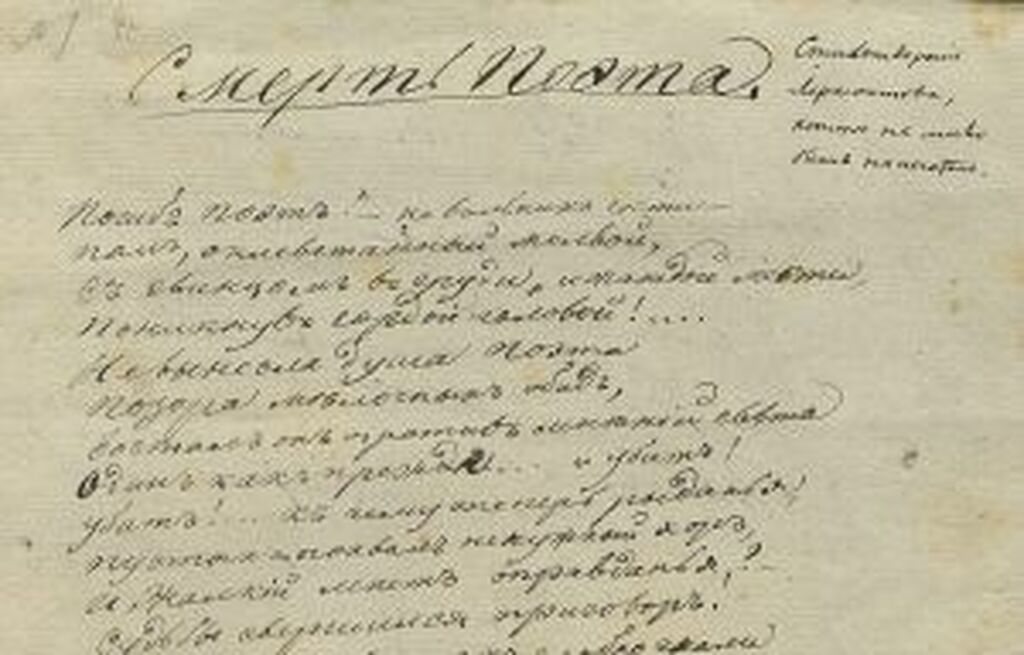 Смерть Поэта.
Стихотворение
Лермонтова,
которое не может
быть напечатано.
Погибъ Поэтъ! — невольникъ чести —
палъ, оклеветанный молвой,
съ свинцомъ въ груди, и жаждой мести
Поникнувъ гордой головой!....
Не вынесла душа Поэта
позора мелочныхъ обидъ,
возсталъ онъ противъ мнѣній свѣта
Одинъ какъ прежде.... и убитъ!
убитъ!... къ чему теперь рыданья,
пустыхъ похвалъ ненужный хоръ,
и жалкій лепетъ оправданья,?—
Судьбы свершился приговоръ.